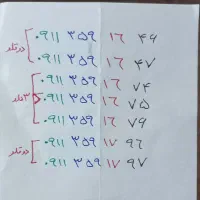 ۰۹۱۱ ۳۵۹ ۱۶ ۴۶
۰۹۱۱ ۳۵۹ ۱۶ ۴۷
۰۹۱۱ ۳۵۹ ۱۶ ۷۴
۰۹۱۱ ۳۵۹ ۱۶ ۷۵
۰۹۱۱ ۳۵۹ ۱۶ ۷۹
۰۹۱۱ ۳۵۹ ۱۷ ۹۶
۰۹۱۱ ۳۵۹ ۱۷ ۹۷
دوقلو
۳ قلو
دوقلو